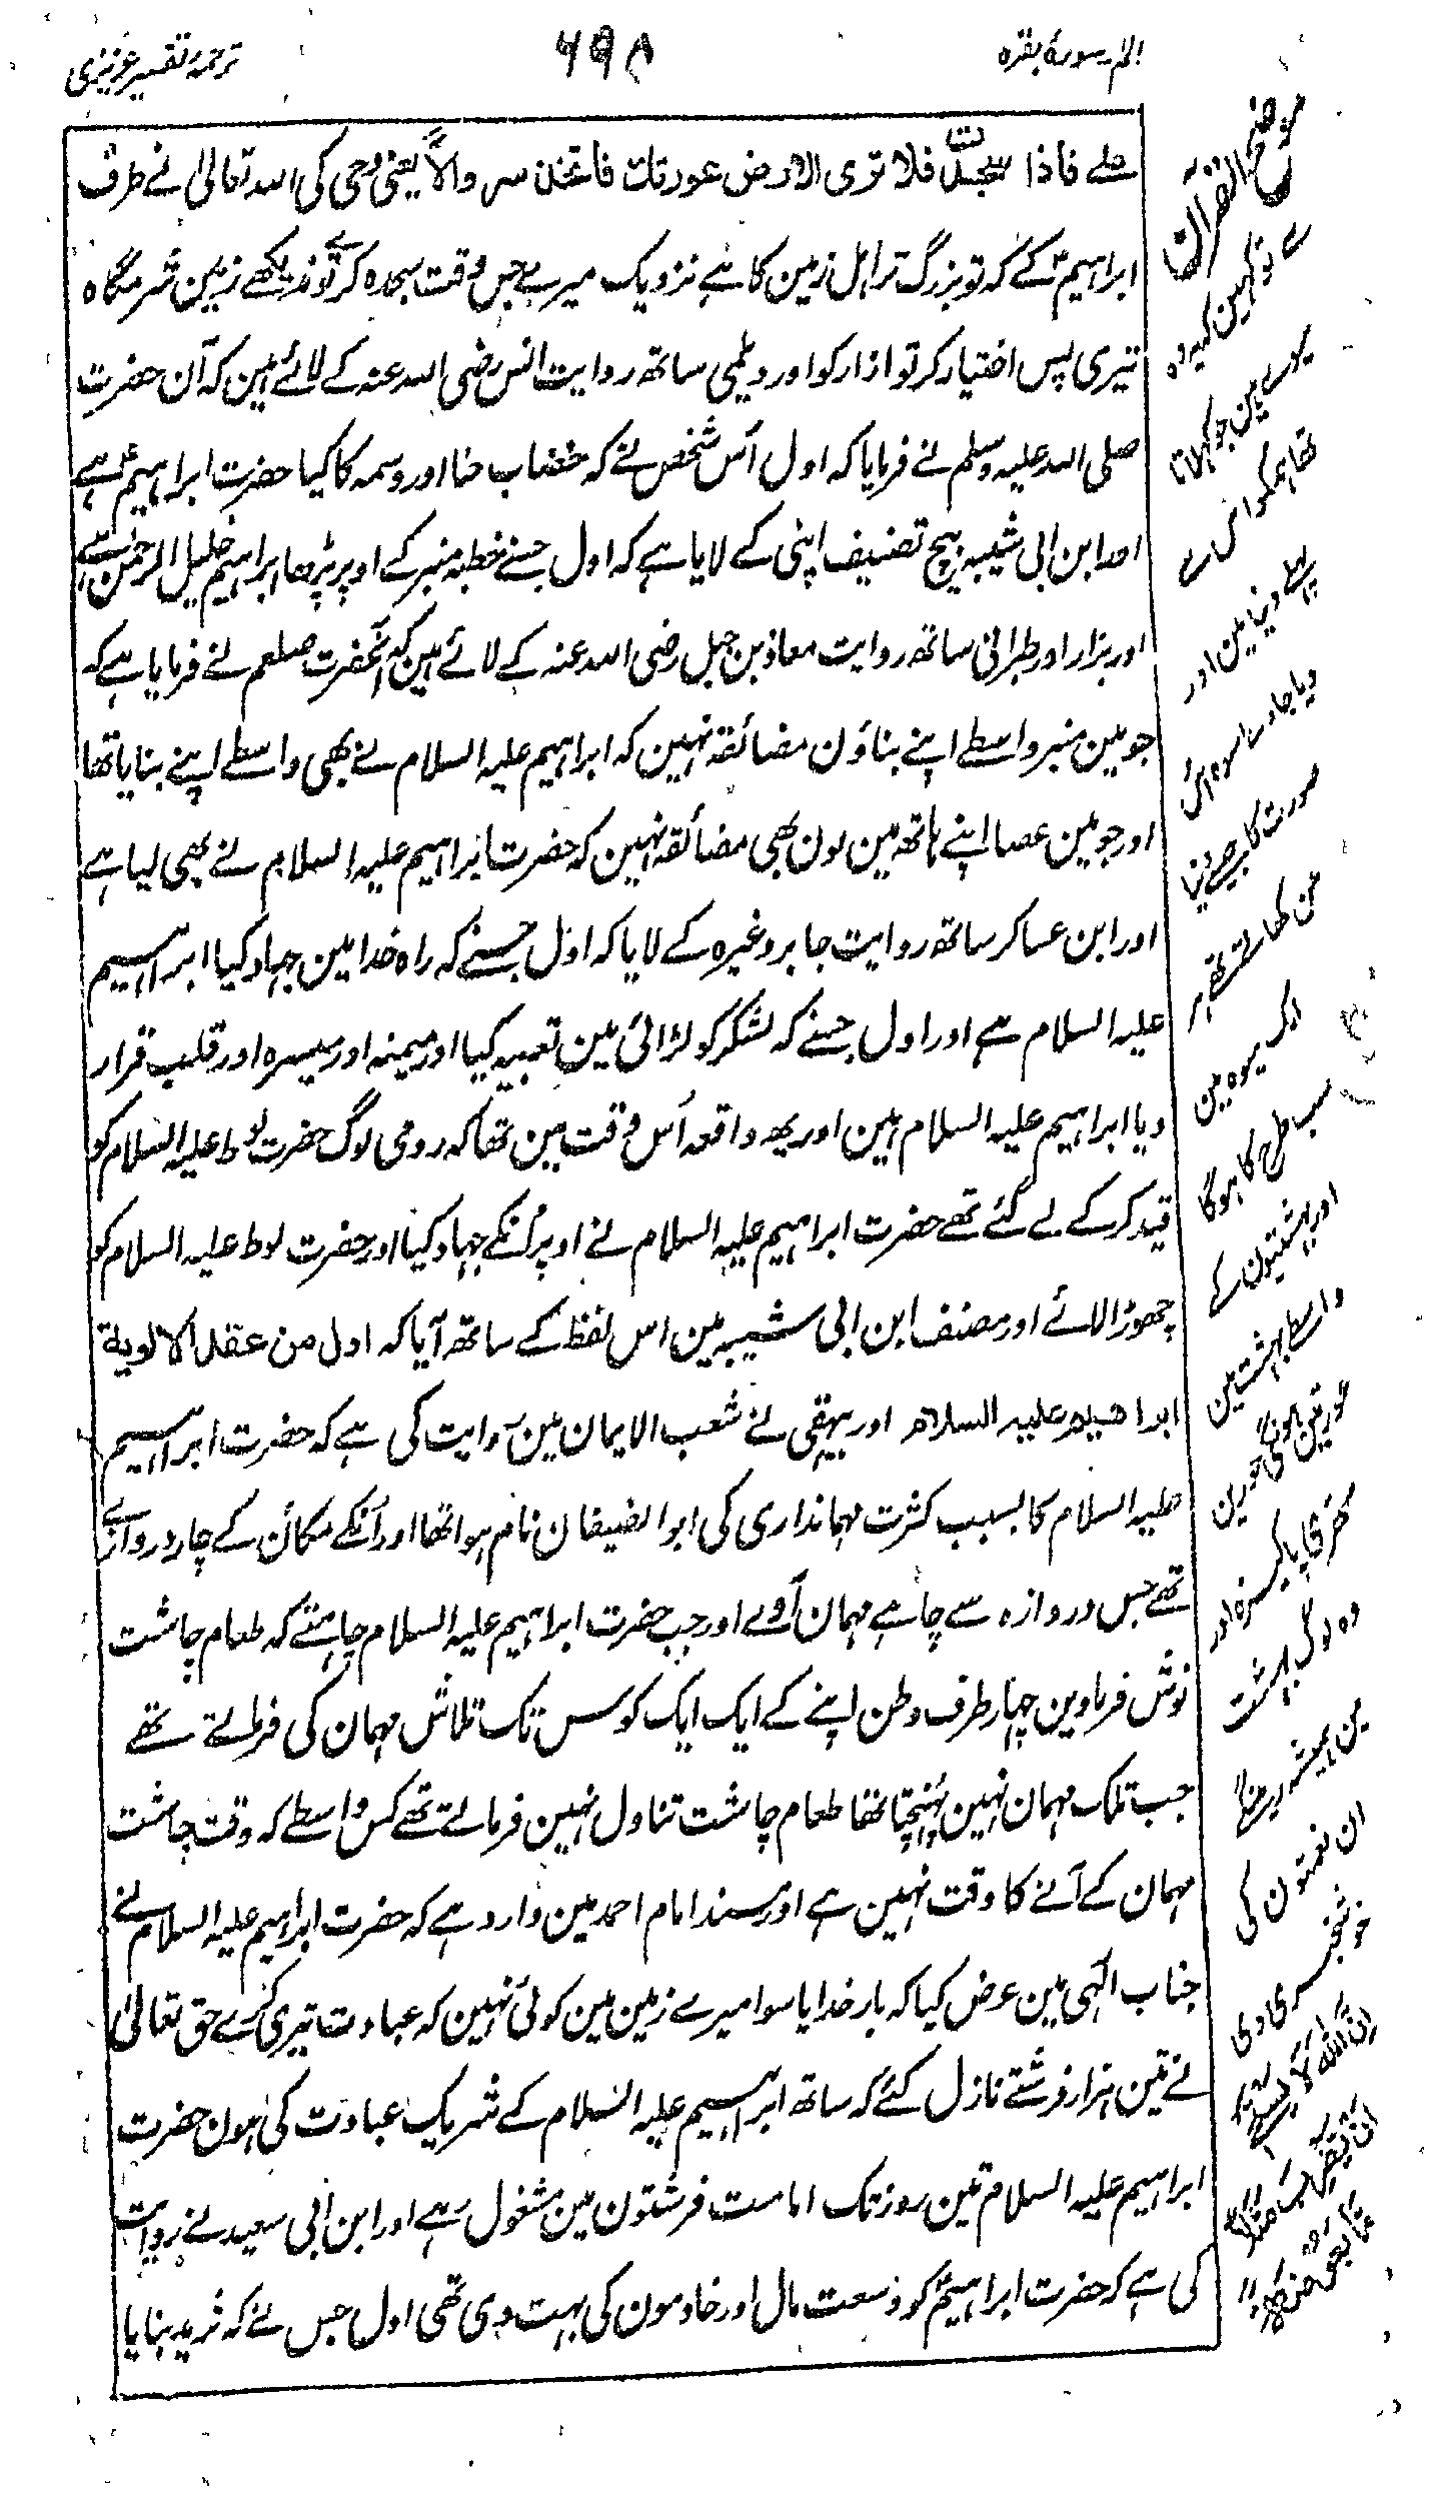 الم سورۂ بقرہ
۶۹۸
ترجمۂ تفسیر عزیزی
علے فاذا سجدت فلا تری الارض عورتك فاتخذ سروالاً یعنی وحی کی اللہ تعالیٰ نے طرف
ابراہیمؑ کے کہ تو بزرگ تر اہل زمین کا ہے نزدیک میرے جس وقت سجدہ کرے تو نہ دیکھے زمین شرمگاہ
تیری پس اختیار کر تو ازار کو اور دیلمی ساتھ روایت انس رضی اللہ عنہ کے لائے ہین کہ آن حضرت
صلی اللہ علیہ وسلم نے فرمایا کہ اول اُس شخص نے کہ خضاب حنا اور وسمہ کا کیا حضرت ابراہیمؑ ہے
اور ابن ابی شیبہ بیچ تصنیف اپنی کے لایا ہے کہ اول جسنے خطبہ منبر کے اوپر پڑھا ابراہیم خلیل الرحمٰن ہے
اور بزار اور طبرانی ساتھ روایت معاذ بن جبل رضی اللہ عنہ کے لائے ہین کہ آنحضرت صلعم نے فرمایا ہے کہ
جو مین منبر واسطے اپنے بناؤن مضائقہ نہین کہ ابراہیم علیہ السلام نے بھی واسطے اپنے بنایا تھا
اور جو مین عصا اپنے ہاتھ مین لون بھی مضائقہ نہین کہ حضرت ابراہیم علیہ السلام نے بھی لیا ہے
اور ابن عساکر ساتھ روایت جابر وغیرہ کے لایا کہ اول جسنے کہ راہ خدا مین جہاد کیا ابراہیم
علیہ السلام ہے اور اول جسنے کہ لشکر کو لڑائی مین تعبیہ کیا اور میمنہ اور میسرہ اور قلب قرار
دیا ابراہیم علیہ السلام ہین اور یہہ واقعہ اُس وقت مین تھا کہ رومی لوگ حضرت لوط علیہ السلام کو
قید کر کے لے گئے تھے حضرت ابراہیم علیہ السلام نے اوپر اُنکے جہاد کیا اور حضرت لوط علیہ السلام کو
چھوڑا لائے اور مصنف ابن ابی شیبہ مین اس لفظ کے ساتھ آیا کہ اول من عقد الالویة
ابراهیم علیه السلام اور بیہقی نے شعب الایمان مین روایت کی ہے کہ حضرت ابراہیم
علیہ السلام کا بسبب کثرت مہمانداری کی ابو الضیفان نام ہوا تھا اور اُنکے مکان کے چار دروازے
تھے جس دروازہ سے چاہے مہمان آوے اور جب حضرت ابراہیم علیہ السلام چاہتے کہ طعام چاشت
نوش فرماوین چہار طرف وطن اپنے کے ایک ایک کوس تک تلاش مہمان کی فرماتے تھے
جب تلک مہمان نہین پہنچتا تھا طعام چاشت تناول نہین فرماتے تھے کس واسطے کہ وقت چاشت
مہمان کے آنے کا وقت نہین ہے اور مسند امام احمد مین وارد ہے کہ حضرت ابراہیم علیہ السلام نے
جناب الٰہی مین عرض کیا کہ بار خدایا سوا میرے زمین مین کوئی نہین کہ عبادت تیری کرے حق تعالیٰ
نے تین ہزار فرشتے نازل کئے کہ ساتھ ابراہیم علیہ السلام کے شریک عبادت کی ہون حضرت
ابراہیم علیہ السلام تین روز تک امامت فرشتون مین مشغول رہے اور ابن ابی سعید نے روایت
کی ہے کہ حضرت ابراہیمؑ کو وسعت مال اور خادمون کی بہت دی تھی اول جس نے کہ ثرید بنایا
موضح القرآن
تو کہین گے یہ وہ
میوے ہین جو کہلاتا
تھا ہمکو اس سے
پہلے دنیا مین اور
دیا جاوے میوہ اس
صورت کا جیسے دنیا
مین کھاتے تھے پر
اس میوہ مین
سب طرح کا ہوگا
اور بہشتیون کے
واسطے بہشت مین
عورتین ہونگی حورین
ستھری پاکیزہ اور
وہ لوگ بہشت
مین ہمیشہ رہینگے
ان نعمتون کی
خوشخبری دی
اِنَّ اللّٰهَ لَا یَسْتَحْیٖ
اَنْ یَّضْرِبَ مَثَلًا
مَّا بَعُوْضَةً